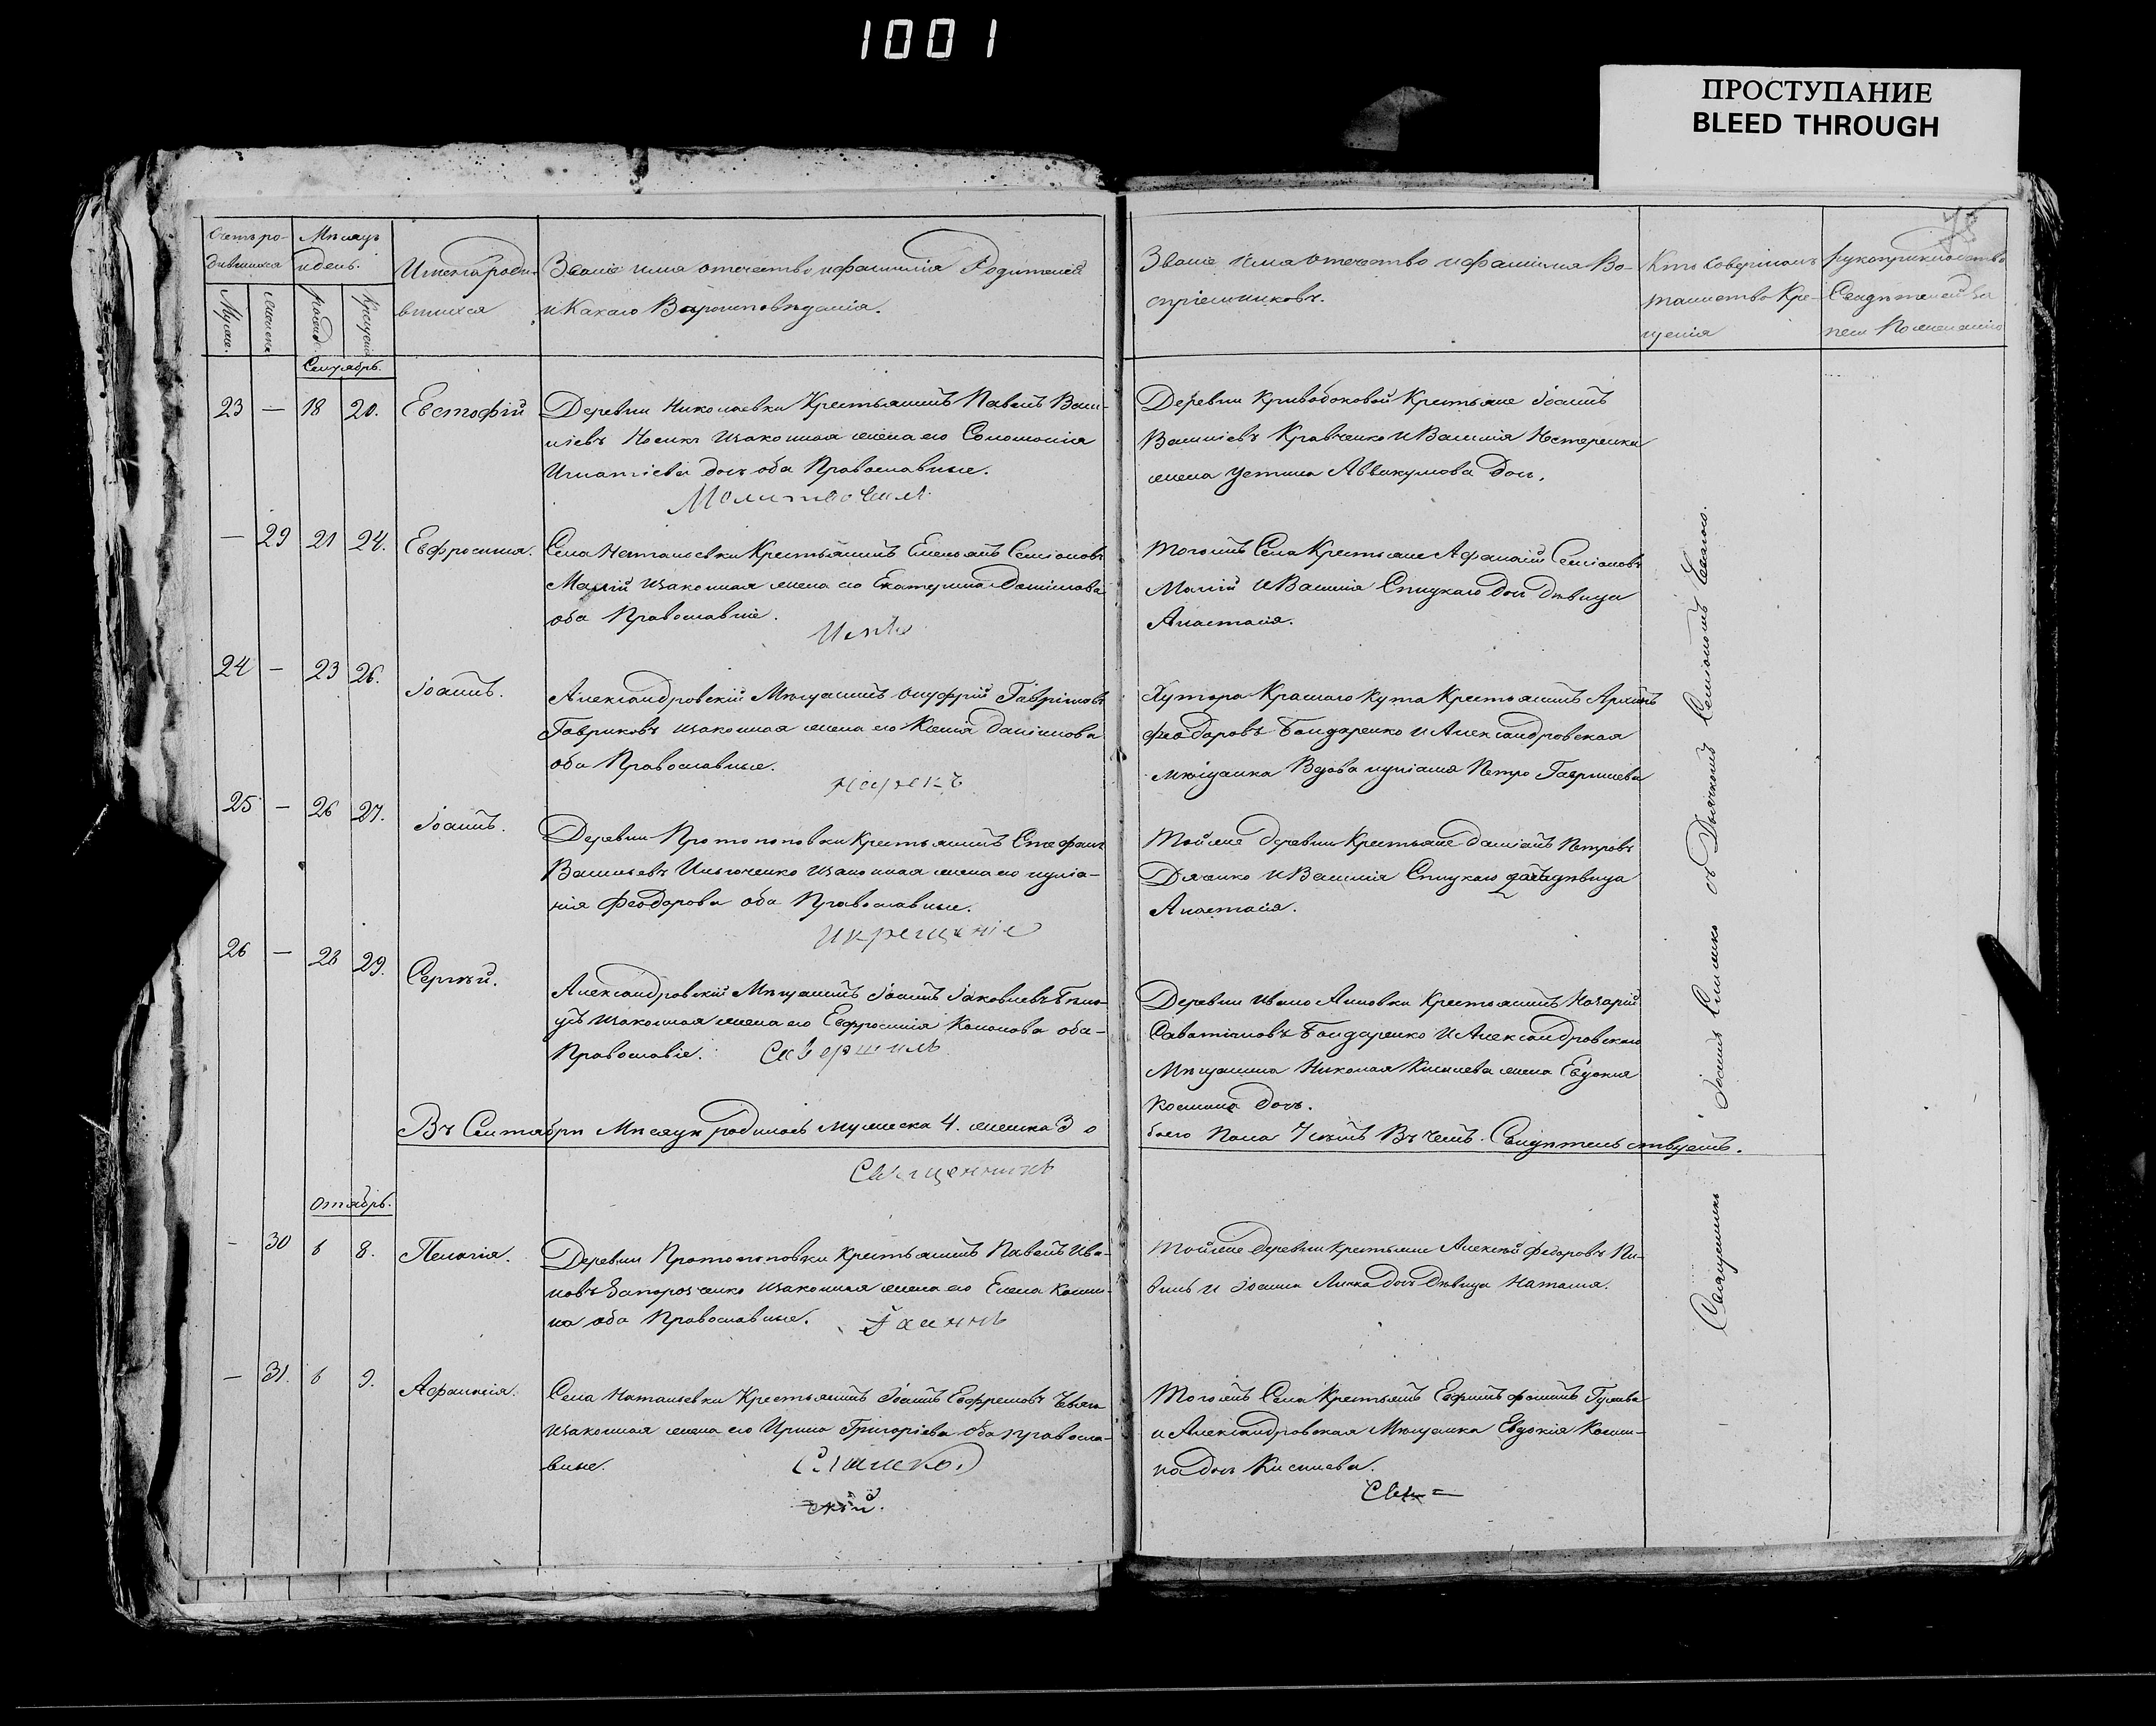 1001
ПРОСТУПАНИЕ
BLEED THROUGH
75
Счетъ ро-
дившихся
Мѣсяцъ
и день.
Муже.
Женска
рожде.
Крещени
Имена роди-
вшихся
Званіе имя отечество и фамилія Родителей
и Какаго Вероисповѣданія.
Званіе имя отечество и фамилия Во-
спріемниковъ.
Кто Совершалъ
таинство Кре-
щенія
рукоприкладство
Свидѣтелей за
писи По желанію
Сентябрь.
23 — 18 20. Евстофій
Деревни Николаевки Крестьянинъ Павелъ Васи-
ліевъ Носикъ Изаконная жена его Соломонія
Игнатіева дочь оба Православные.
Молитвовалъ
Деревни Кривобоковой Крестьяне Іоаннъ
Василіевъ Кравченко и Василія Нестеренка
жена Устина Аввакумова Дочь.
— 29 21 24. Евфросинія.
Села Наталіевки Крестьянинъ Емельянъ Семіоновъ
Малій Изаконная жена его Екатерина Даніилова
оба Православніе.
Имя
Тогожъ Села Крестьяне Афанасій Семіоновъ
Малій и Василія Спицкаго Дочь дѣвица
Анастасія.
24 — 23 26. Іоаннъ.
Александровскій Мѣщанинъ Онуфрій Гавріиловъ
Гавриковъ Изаконная жена его Ксенія Даніилова
оба Православные.
нарекъ
Хутора Краснаго Кута Крестьянинъ Архипъ
Феодоровъ Бондаренко и Александровская
мѣщанка Вдова Іуліанія Петро Гаврилева
25 — 26 27. Іоаннъ.
Деревни Протопоповки Крестьянинъ Стефанъ
Васильевъ Ильюченко Изаконная жена его Іуліа-
нія Феодорова оба Православные.
и крещеніе
Тойже деревни Крестьяне Даміанъ Петровъ
Дяченко и Василія Спицкаго дочь дѣвица
Анастасія.
26 — 28 29. Сергѣй.
Александровскій Мѣщанинъ Іоаннъ Іаковлевъ
Изаконная жена его Евфросинія Кононова оба-
Православніе.
Савершилъ
Деревни Ивано Анновки Крестьянинъ Назарій
Саватіиловъ Бондаренко и Александровскаго
Мѣщанина Николая Киселева жена Евдокія
Космина Дочь.
Въ Сентябрѣ Мѣсяцѣ родилось мужеска 4. женска 3 о
боего Пола 7 имъ Въ чемъ Свидѣтельствуемъ.
Священникъ
Отябрь.
- 30 6 8. Пелагія.
Деревни Протопоповки Крестьянинъ Павелъ Ива-
новъ Запорозченко Изаконная жена его Елена Косми-
на оба Православные.
Іаннъ
Тойже Деревни Крестьяне Алексѣй Федоровъ Пи-
и Іоанна Линка Дочь Дѣвица Наталія.
— 31. 6 9. Афанасія.
Села Наталіевки Крестьянинъ Іоаннъ Евфремовъ
Изаконная жена его Ирина Григоріева оба Правосла-
вные.
Слинко.)
скій.
Тогожъ Села Крестьянъ Евфимъ Фоминъ
и Александровская Мѣщанка Евдокія Косми-
на Дочь Киселева.
Свя=
Священникъ Іоаннъ Слинко съ Дьячкомъ Семіономъ